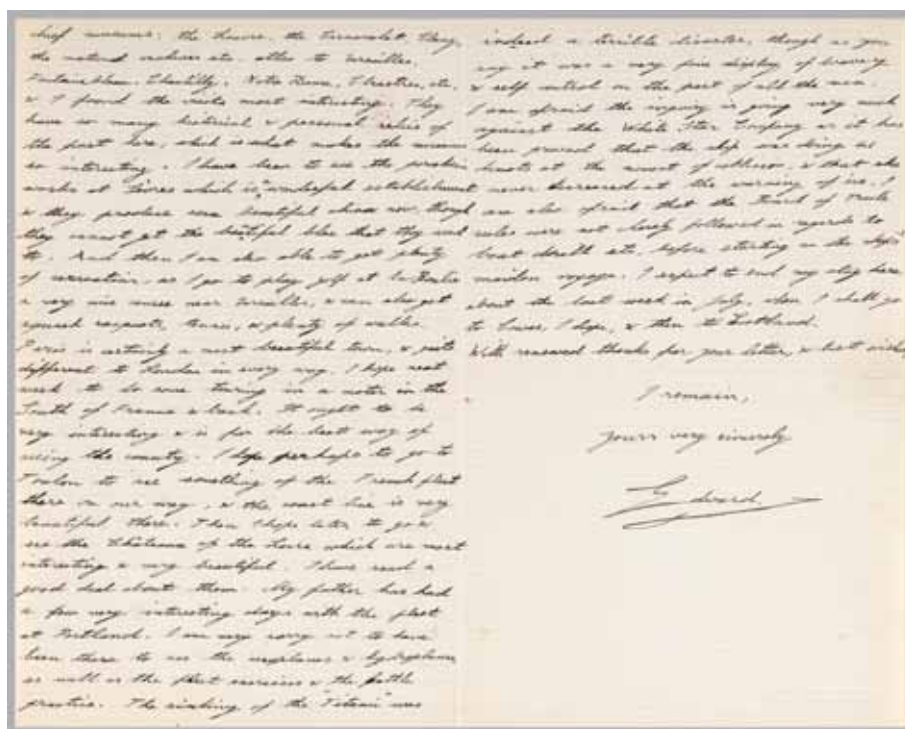 chief museums: the Louvre, the Carnavalet, Cluny,
the natural           etc. also to Versailles,
Fontainebleau, Chantilly, Notre Dame, Theatres, etc.
& I found the visits most interesting. They
have so many historical & personal relics of
the past here, which is what makes the museums
so interesting. I have been to see the porcelain
works at Sèvres which is wonderful establishment
& they produce some beautiful china now, though
they cannot get the beautiful blue that they used
to. And then I am also able to get plenty
of recreation, as I go to play golf at La Boulie
a very nice course near Versailles, & can also get
squash racquets, tennis, & plenty of walks.
Paris is certainly a most beautiful town, & quite
different to London in every way. I hope next
week to do some touring in a motor in the
South of France & back. It ought to be
very interesting & is far the best way of
seeing the country. I hope perhaps to go to
Toulon to see something of the French fleet
there on our way, & the coast line is very
beautiful there. Then I hope later to go &
see the Châteaux of the Loire which are most
interesting & very beautiful. I have read a
good deal about them. My father has had
a few very interesting days with the fleet
at Portland. I am very sorry not to have
been there to see the aeroplanes & hydroplanes
as well as the fleet exercises & the battle
practice. The sinking of the "Titanic" was
indeed a terrible disaster, though as you
say it was a very fine display of bravery
& self control on the part of all the men.
I am afraid the inquiry is going very much
against the White Star Company as it has
been proved that the ship was doing
knots at the moment of collision, & that she
never decreased at the warning of ice. I
am also afraid that the Board of Trade
rules were not closely followed in regards to
boat drill etc. before starting on the ship's
maiden voyage. I expect to end my stay here
about the last week in July, when I shall go
to Cowes, I hope, & then to Scotland.
With renewed thanks for your letter, & best wishes,
I remain,
yours very sincerely
Edward